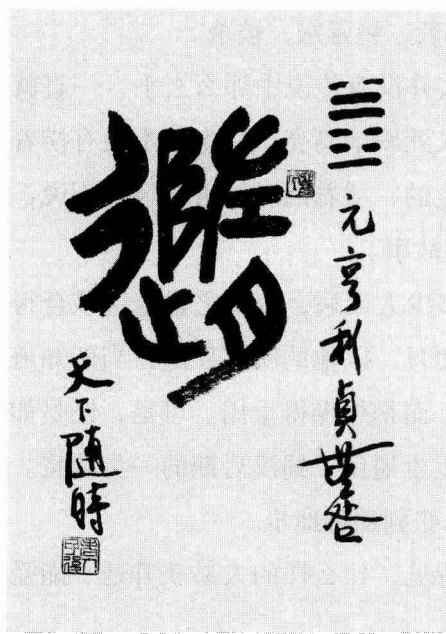 元亨利貞無咎
隨
天下隨時